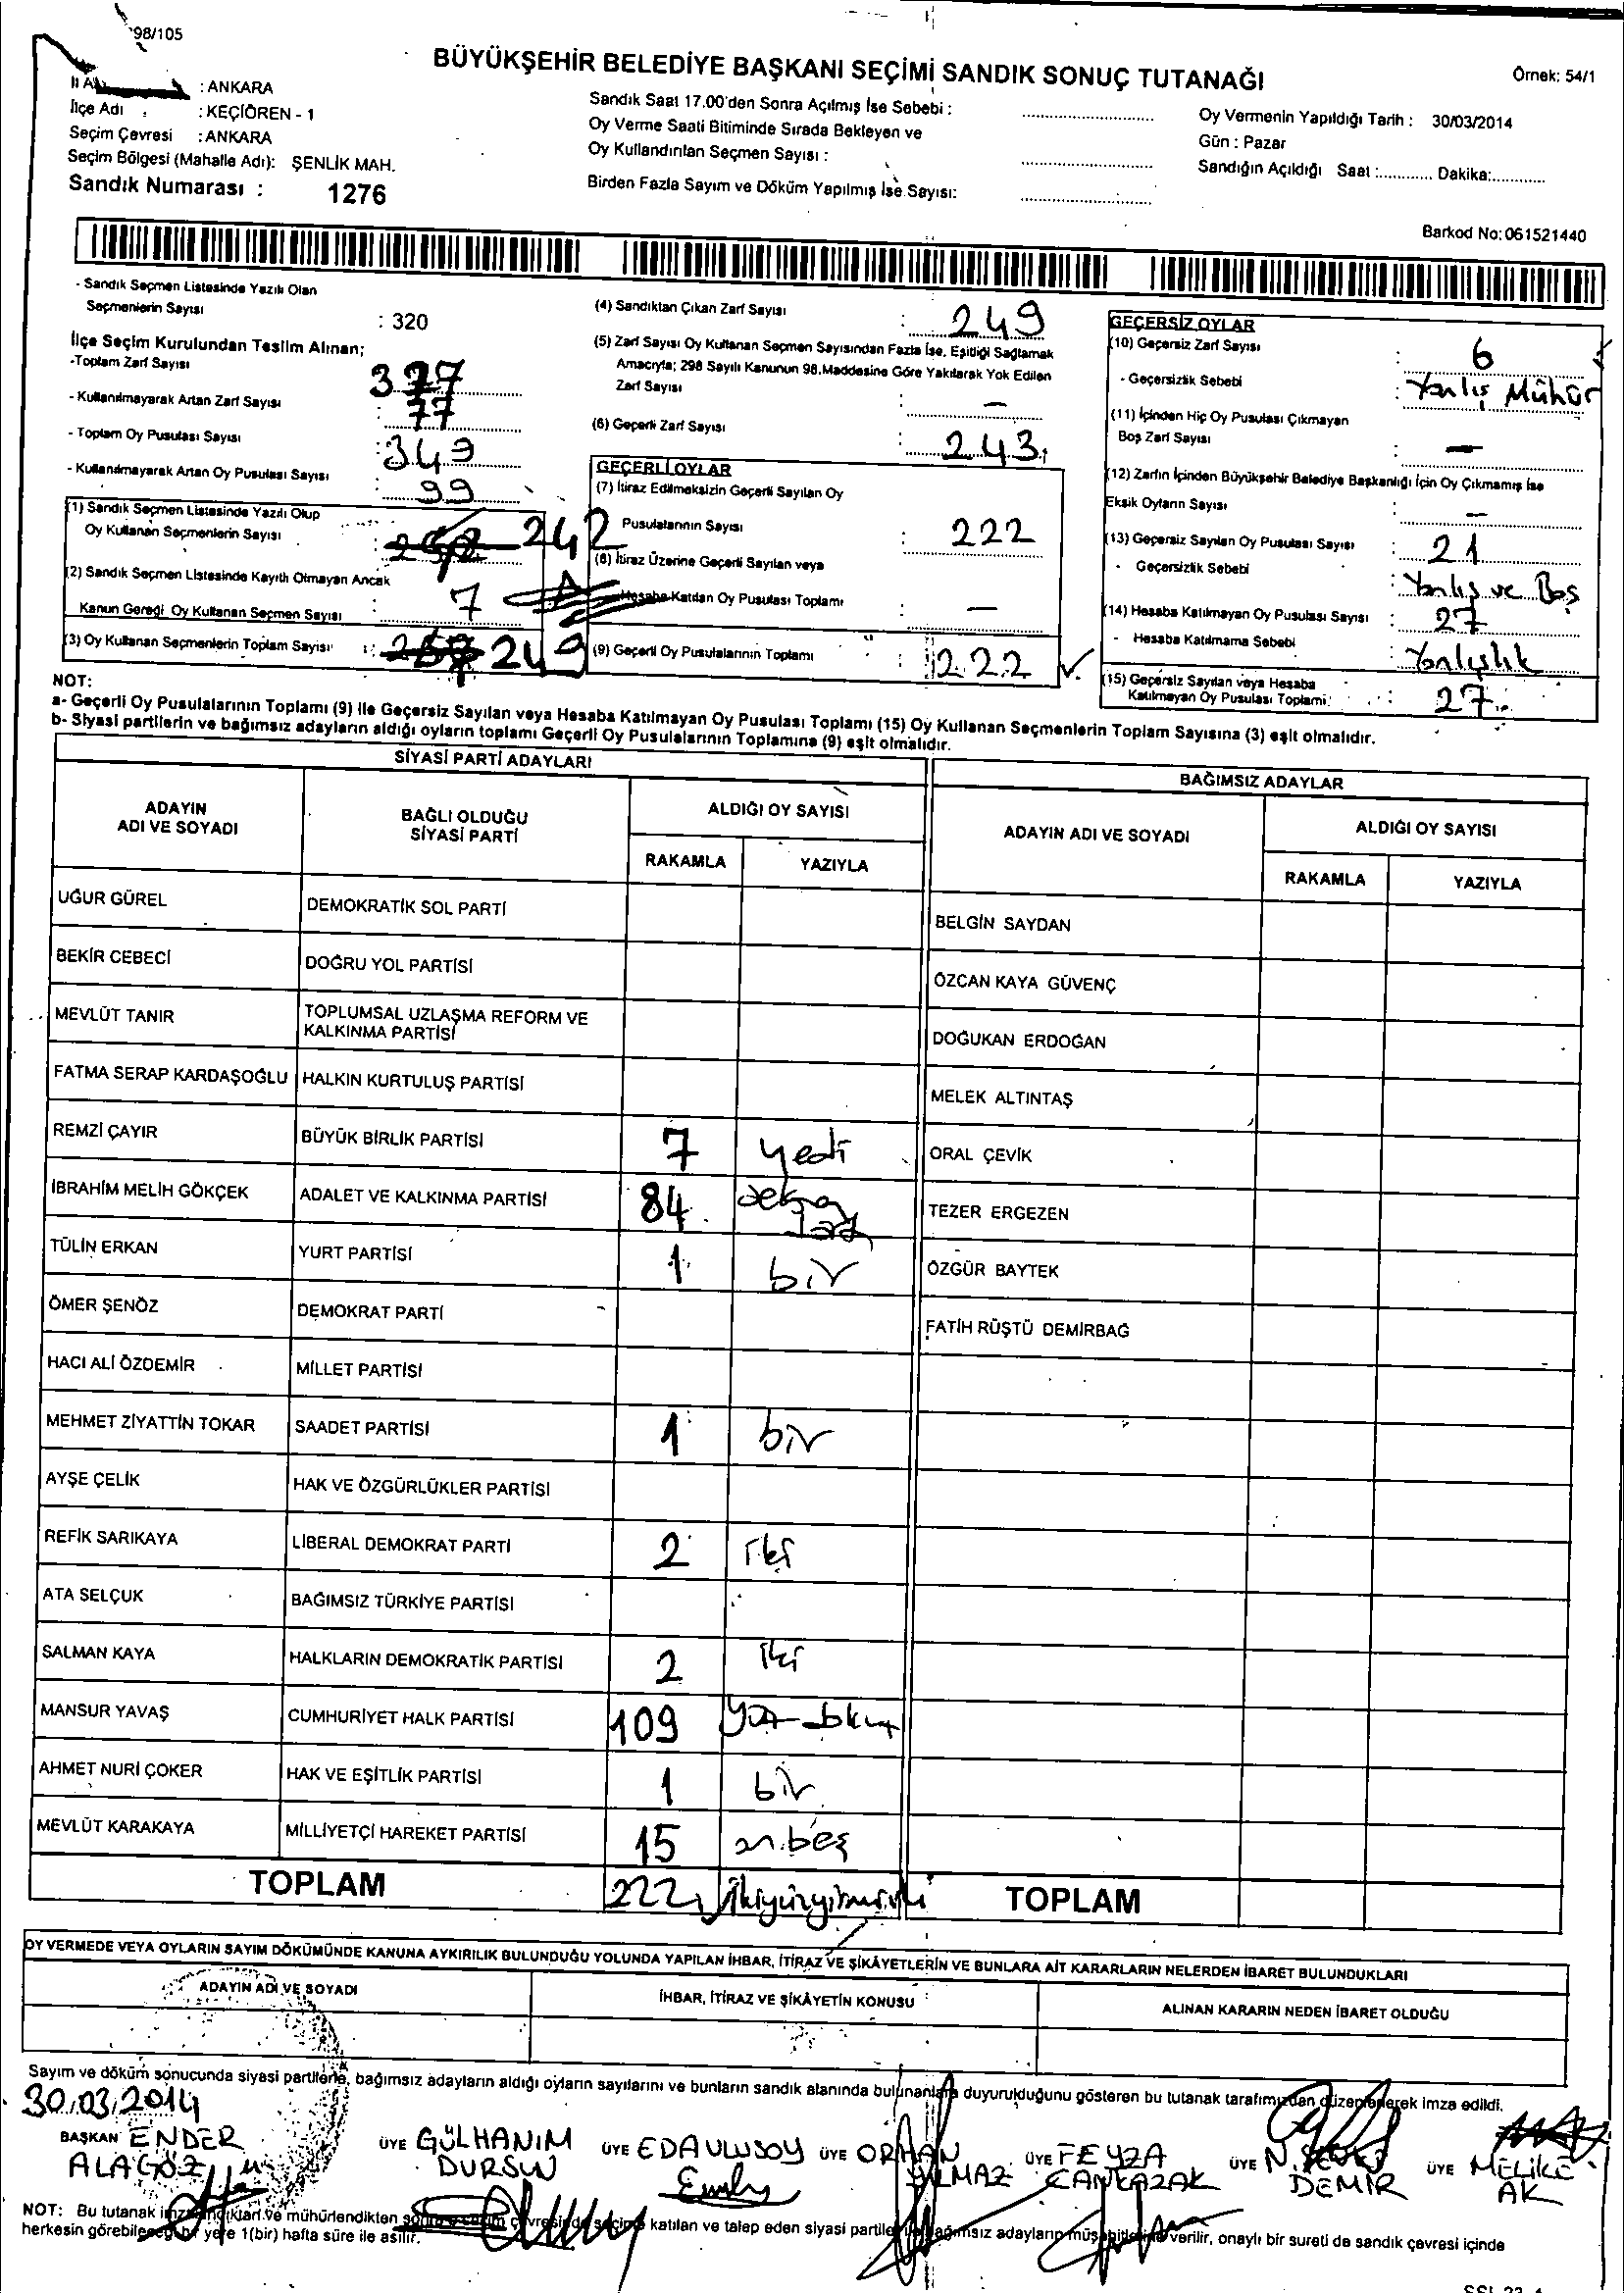 98/105
BÜYÜKŞEHİR BELEDİYE BAŞKANI SEÇİMİ SANDIK SONUÇ TUTANAĞI
Örnek: 54/1
: ANKARA
İlçe Adı : KEÇİÖREN - 1
Seçim Çevresi : ANKARA
Seçim Bölgesi (Mahalle Adı): ŞENLİK MAH.
Sandık Numarası : 1276
Sandık Saat 17.00'den Sonra Açılmış İse Sebebi :
Oy Verme Saati Bitiminde Sırada Bekleyen ve
Oy Kullandırılan Seçmen Sayısı :
Birden Fazla Sayım ve Döküm Yapılmış İse Sayısı:
Oy Vermenin Yapıldığı Tarih : 30/03/2014
Gün : Pazar
Sandığın Açıldığı Saat :............ Dakika:............
Barkod No: 061521440
- Sandık Seçmen Listesinde Yazılı Olan
Seçmenlerin Sayısı : 320
İlçe Seçim Kurulundan Teslim Alınan;
-Toplam Zarf Sayısı 377
- Kullanılmayarak Artan Zarf Sayısı : 77
- Toplam Oy Pusulası Sayısı : 349
- Kullanılmayarak Artan Oy Pusulası Sayısı : 99
(1) Sandık Seçmen Listesinde Yazılı Olup
Oy Kullanan Seçmenlerin Sayısı : 242
(2) Sandık Seçmen Listesinde Kayıtlı Olmayan Ancak
Kanun Gereği Oy Kullanan Seçmen Sayısı : 7
(3) Oy Kullanan Seçmenlerin Toplam Sayısı : 249
(4) Sandıktan Çıkan Zarf Sayısı : 249
(5) Zarf Sayısı Oy Kullanan Seçmen Sayısından Fazla İse, Eşitliği Sağlamak
Amacıyla; 298 Sayılı Kanunun 98.Maddesine Göre Yakılarak Yok Edilen
Zarf Sayısı : -
(6) Geçerli Zarf Sayısı : 243
GEÇERLİ OYLAR
(7) İtiraz Edilmeksizin Geçerli Sayılan Oy
Pusulalarının Sayısı : 222
(8) İtiraz Üzerine Geçerli Sayılan veya
Hesaba Katılan Oy Pusulası Toplamı : -
(9) Geçerli Oy Pusulalarının Toplamı : 222
GEÇERSİZ OYLAR
(10) Geçersiz Zarf Sayısı : 6
- Geçersizlik Sebebi : Yanlış Mühür
(11) İçinden Hiç Oy Pusulası Çıkmayan
Boş Zarf Sayısı : -
(12) Zarfın İçinden Büyükşehir Belediye Başkanlığı İçin Oy Çıkmamış İse
Eksik Oyların Sayısı : -
(13) Geçersiz Sayılan Oy Pusulası Sayısı : 21
- Geçersizlik Sebebi : Yanlış ve Boş
(14) Hesaba Katılmayan Oy Pusulası Sayısı : 27
- Hesaba Katılmama Sebebi : Yanlışlık
(15) Geçersiz Sayılan veya Hesaba
Katılmayan Oy Pusulası Toplamı : 27
NOT:
a- Geçerli Oy Pusulalarının Toplamı (9) ile Geçersiz Sayılan veya Hesaba Katılmayan Oy Pusulası Toplamı (15) Oy Kullanan Seçmenlerin Toplam Sayısına (3) eşit olmalıdır.
b- Siyasi partilerin ve bağımsız adayların aldığı oyların toplamı Geçerli Oy Pusulalarının Toplamına (9) eşit olmalıdır.
SİYASİ PARTİ ADAYLARI
ADAYIN ADI VE SOYADI
BAĞLI OLDUĞU SİYASİ PARTİ
ALDIĞI OY SAYISI
RAKAMLA YAZIYLA
UĞUR GÜREL DEMOKRATİK SOL PARTİ
BEKİR CEBECİ DOĞRU YOL PARTİSİ
MEVLÜT TANIR TOPLUMSAL UZLAŞMA REFORM VE KALKINMA PARTİSİ
FATMA SERAP KARDAŞOĞLU HALKIN KURTULUŞ PARTİSİ
REMZİ ÇAYIR BÜYÜK BİRLİK PARTİSİ 7 yedi
İBRAHİM MELİH GÖKÇEK ADALET VE KALKINMA PARTİSİ 84
TÜLİN ERKAN YURT PARTİSİ 1 bir
ÖMER ŞENÖZ DEMOKRAT PARTİ
HACI ALİ ÖZDEMİR MİLLET PARTİSİ
MEHMET ZİYATTİN TOKAR SAADET PARTİSİ 1 bir
AYŞE ÇELİK HAK VE ÖZGÜRLÜKLER PARTİSİ
REFİK SARIKAYA LİBERAL DEMOKRAT PARTİ 2 iki
ATA SELÇUK BAĞIMSIZ TÜRKİYE PARTİSİ
SALMAN KAYA HALKLARIN DEMOKRATİK PARTİSİ 2 iki
MANSUR YAVAŞ CUMHURİYET HALK PARTİSİ 109
AHMET NURİ ÇOKER HAK VE EŞİTLİK PARTİSİ 1 bir
MEVLÜT KARAKAYA MİLLİYETÇİ HAREKET PARTİSİ 15 onbeş
TOPLAM 222 ikiyüzyirmiiki
BAĞIMSIZ ADAYLAR
ADAYIN ADI VE SOYADI
ALDIĞI OY SAYISI
RAKAMLA YAZIYLA
BELGİN SAYDAN
ÖZCAN KAYA GÜVENÇ
DOĞUKAN ERDOĞAN
MELEK ALTINTAŞ
ORAL ÇEVİK
TEZER ERGEZEN
ÖZGÜR BAYTEK
FATİH RÜŞTÜ DEMİRBAĞ
TOPLAM
OY VERMEDE VEYA OYLARIN SAYIM DÖKÜMÜNDE KANUNA AYKIRILIK BULUNDUĞU YOLUNDA YAPILAN İHBAR, İTİRAZ VE ŞİKÂYETLERİN VE BUNLARA AİT KARARLARIN NELERDEN İBARET BULUNDUKLARI
ADAYIN ADI VE SOYADI
İHBAR, İTİRAZ VE ŞİKÂYETİN KONUSU
ALINAN KARARIN NEDEN İBARET OLDUĞU
Sayım ve döküm sonucunda siyasi partilerle, bağımsız adayların aldığı oyların sayılarını ve bunların sandık alanında bulunanlara duyurulduğunu gösteren bu tutanak tarafımızdan düzenlenerek imza edildi.
30.03.2014
BAŞKAN ENDER ALAGÖZ
ÜYE GÜLHANIM DURSUN
ÜYE EDA ULUSOY
ÜYE ORHAN YILMAZ
ÜYE FEYZA CANKAZAK
ÜYE DEMİR
ÜYE MELİKE AK
NOT: Bu tutanak imzalandıktan ve mühürlendikten sonra o seçim çevresinde seçime katılan ve talep eden siyasi partiler ve bağımsız adayların müşahitlerine verilir, onaylı bir sureti de sandık çevresi içinde
herkesin görebileceği bir yere 1(bir) hafta süre ile asılır.